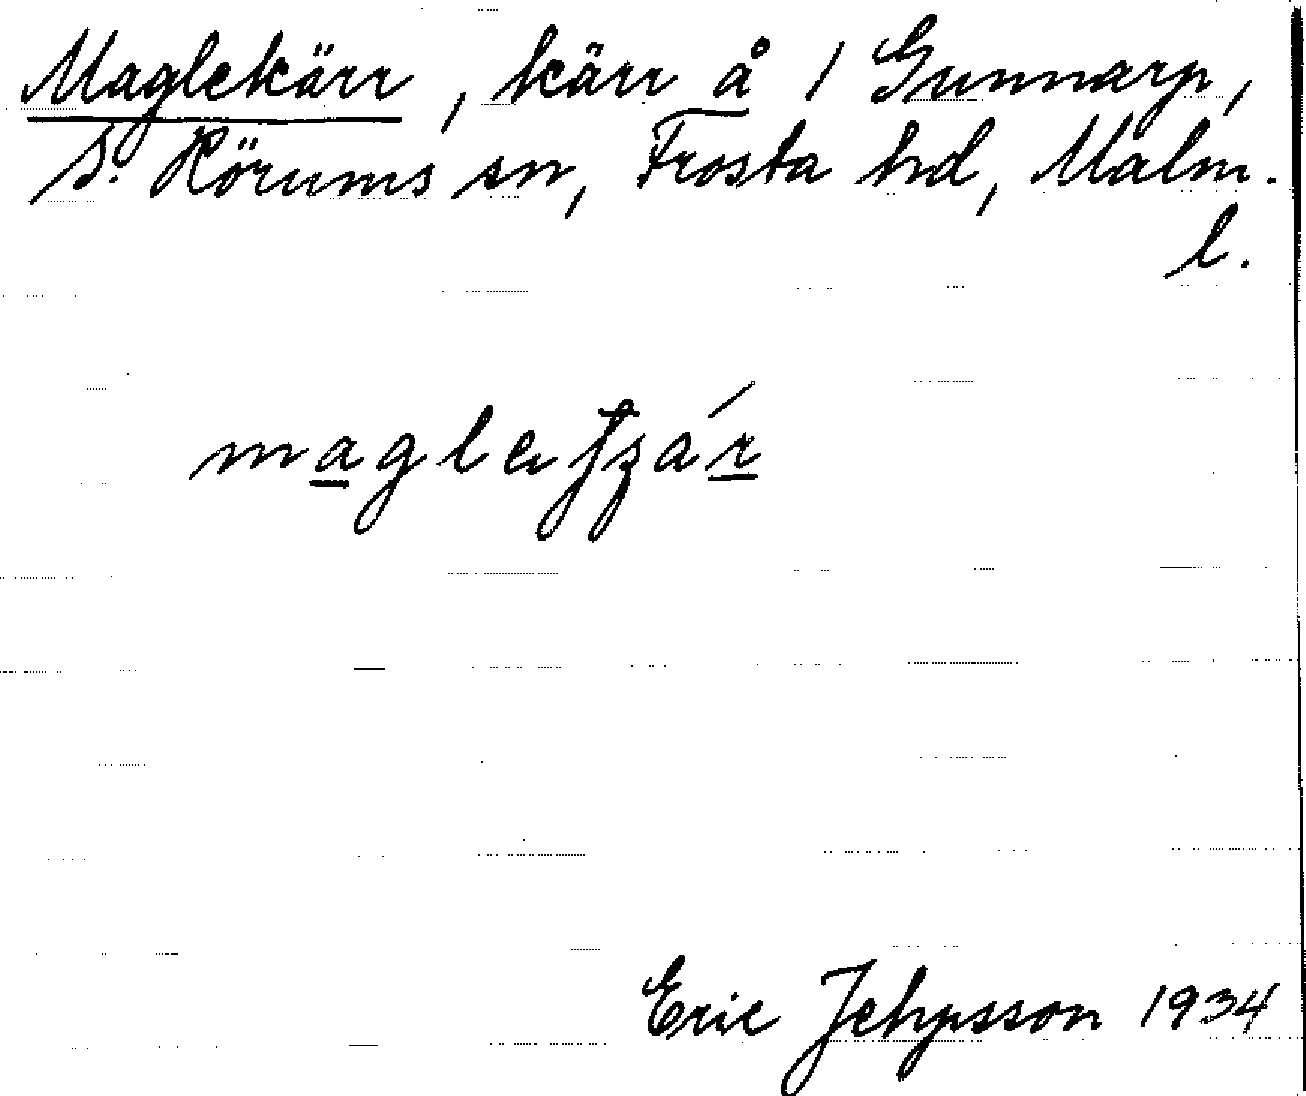 Maglekärr, kärr å 1 Gunnarp,
S. Hörums sn, Frosta hd, Malm.
l.
Eric Jehpsson 1934